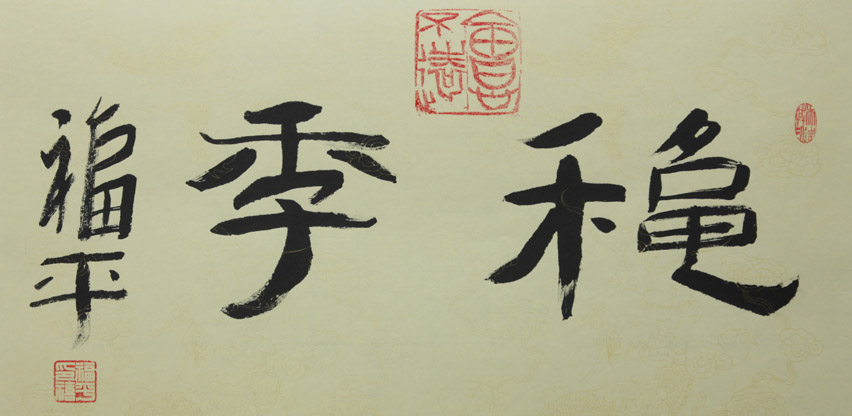 穐季
福平